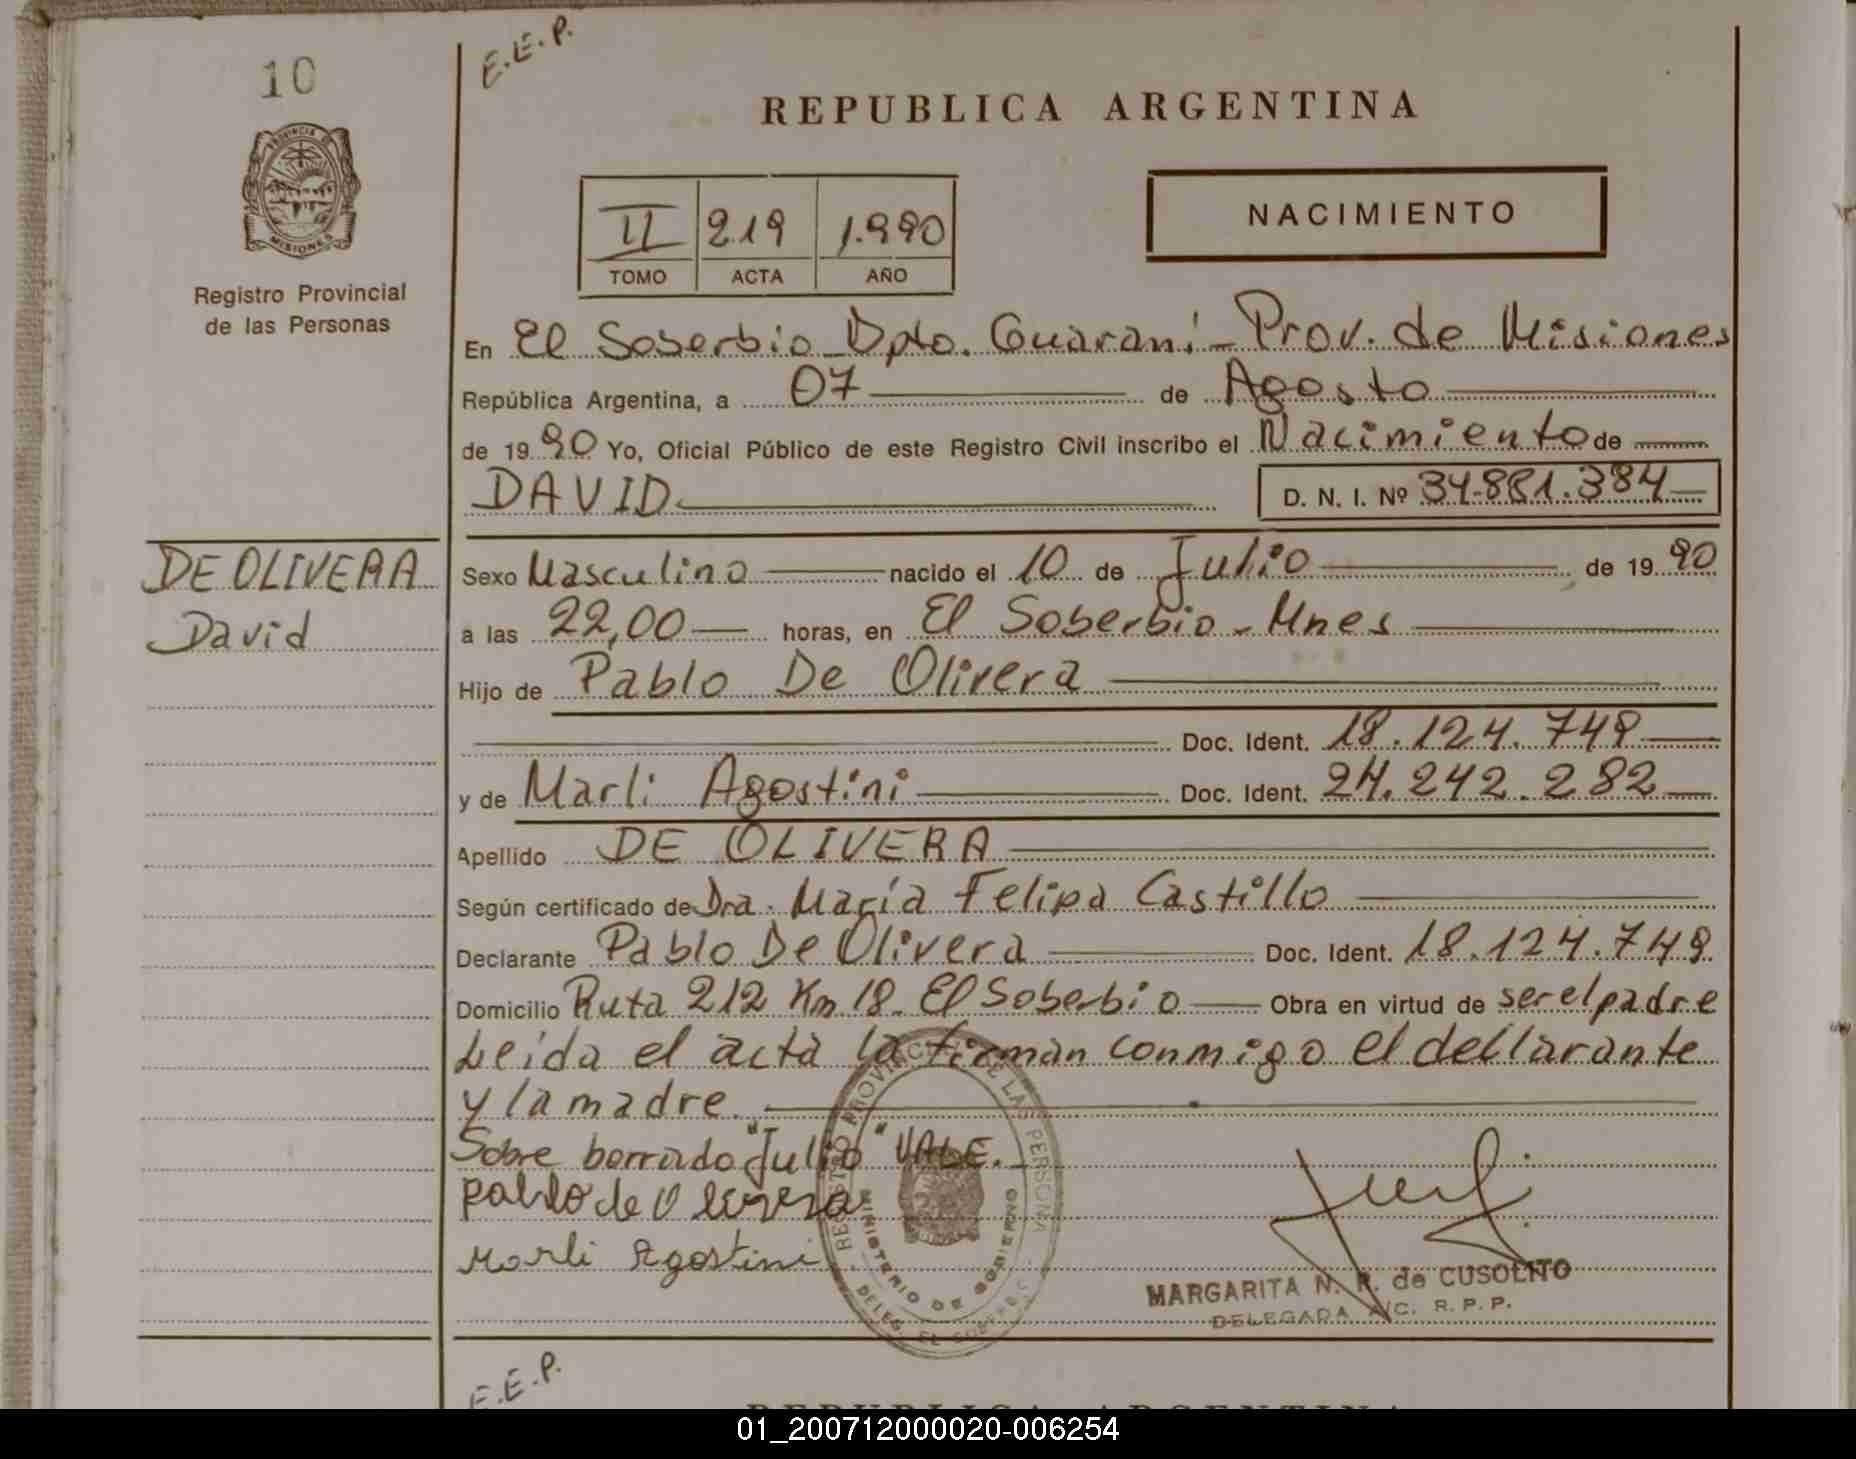 10
E.E.P.
REPUBLICA ARGENTINA
PROVINCIA DE
MISIONES
Registro Provincial
de las Personas
II 219 1.990
TOMO ACTA AÑO
NACIMIENTO
En El Soberbio Dpto. Guaraní - Prov. de Misiones
República Argentina, a 07 de Agosto
de 1990 Yo, Oficial Público de este Registro Civil inscribo el Nacimiento de
DAVID D. N. I. Nº 34.881.384
DE OLIVERA
David
Sexo Masculino nacido el 10 de Julio de 1990
a las 22,00 horas, en El Soberbio - Mnes
Hijo de Pablo De Olivera
Doc. Ident. 18.124.749
y de Marli Agostini Doc. Ident. 24.242.282
Apellido DE OLIVERA
Según certificado de Dra. María Felipa Castillo
Declarante Pablo De Olivera Doc. Ident. 18.124.749
Domicilio Ruta 212 Km 18 - El Soberbio Obra en virtud de ser el padre
Leída el acta la firman conmigo el declarante
y la madre.
Sobre borrado "Julio" VALE.
Pablo de Olivera
Marli Agostini
REGISTRO PROVINCIAL DE LAS PERSONAS
MINISTERIO DE GOBIERNO
DELEG. EL SOBERBIO
MARGARITA N. R. de CUSOLITO
DELEGADA A/C. R. P. P.
E.E.P.
REPUBLICA ARGENTINA
01_200712000020-006254